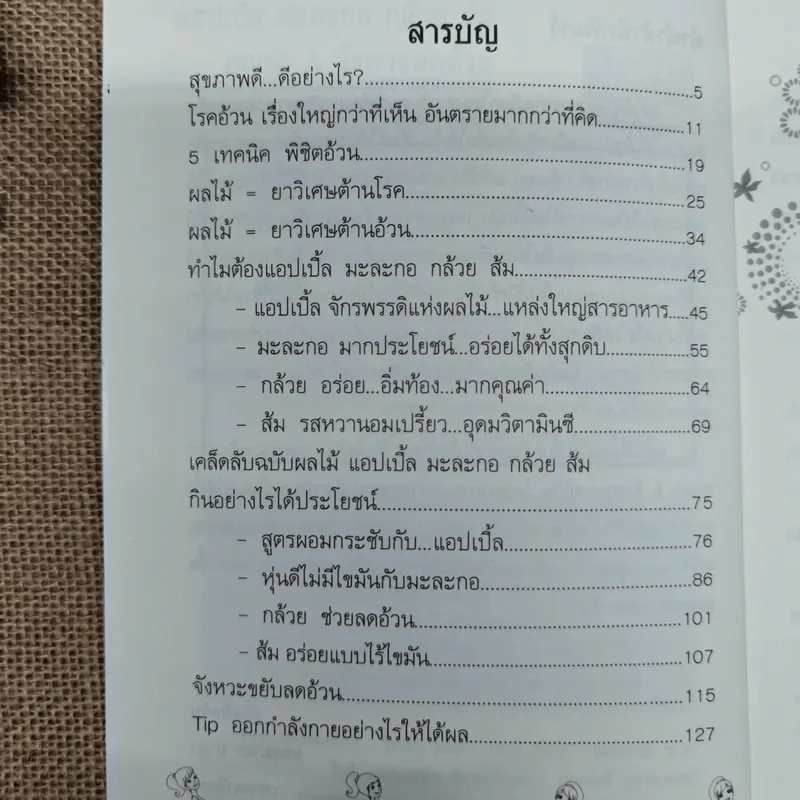 สารบัญ
สุขภาพดี...ดีอย่างไร?...............5
โรคอ้วน เรื่องใหญ่กว่าที่เห็น อันตรายมากกว่าที่คิด...............11
5 เทคนิค พิชิตอ้วน...............19
ผลไม้ = ยาวิเศษต้านโรค...............25
ผลไม้ = ยาวิเศษต้านอ้วน...............34
ทำไมต้องแอปเปิ้ล มะละกอ กล้วย ส้ม...............42
- แอปเปิ้ล จักรพรรดิแห่งผลไม้...แหล่งใหญ่สารอาหาร.....45
- มะละกอ มากประโยชน์...อร่อยได้ทั้งสุกดิบ...............55
- กล้วย อร่อย...อิ่มท้อง...มากคุณค่า...............64
- ส้ม รสหวานอมเปรี้ยว...อุดมวิตามินซี...............69
เคล็ดลับฉบับผลไม้ แอปเปิ้ล มะละกอ กล้วย ส้ม
กินอย่างไรได้ประโยชน์...............75
- สูตรผอมกระชับกับ...แอปเปิ้ล...............76
- หุ่นดีไม่มีไขมันกับมะละกอ...............86
- กล้วย ช่วยลดอ้วน...............101
- ส้ม อร่อยแบบไร้ไขมัน...............107
จังหวะขยับลดอ้วน...............115
Tip ออกกำลังกายอย่างไรให้ได้ผล...............127